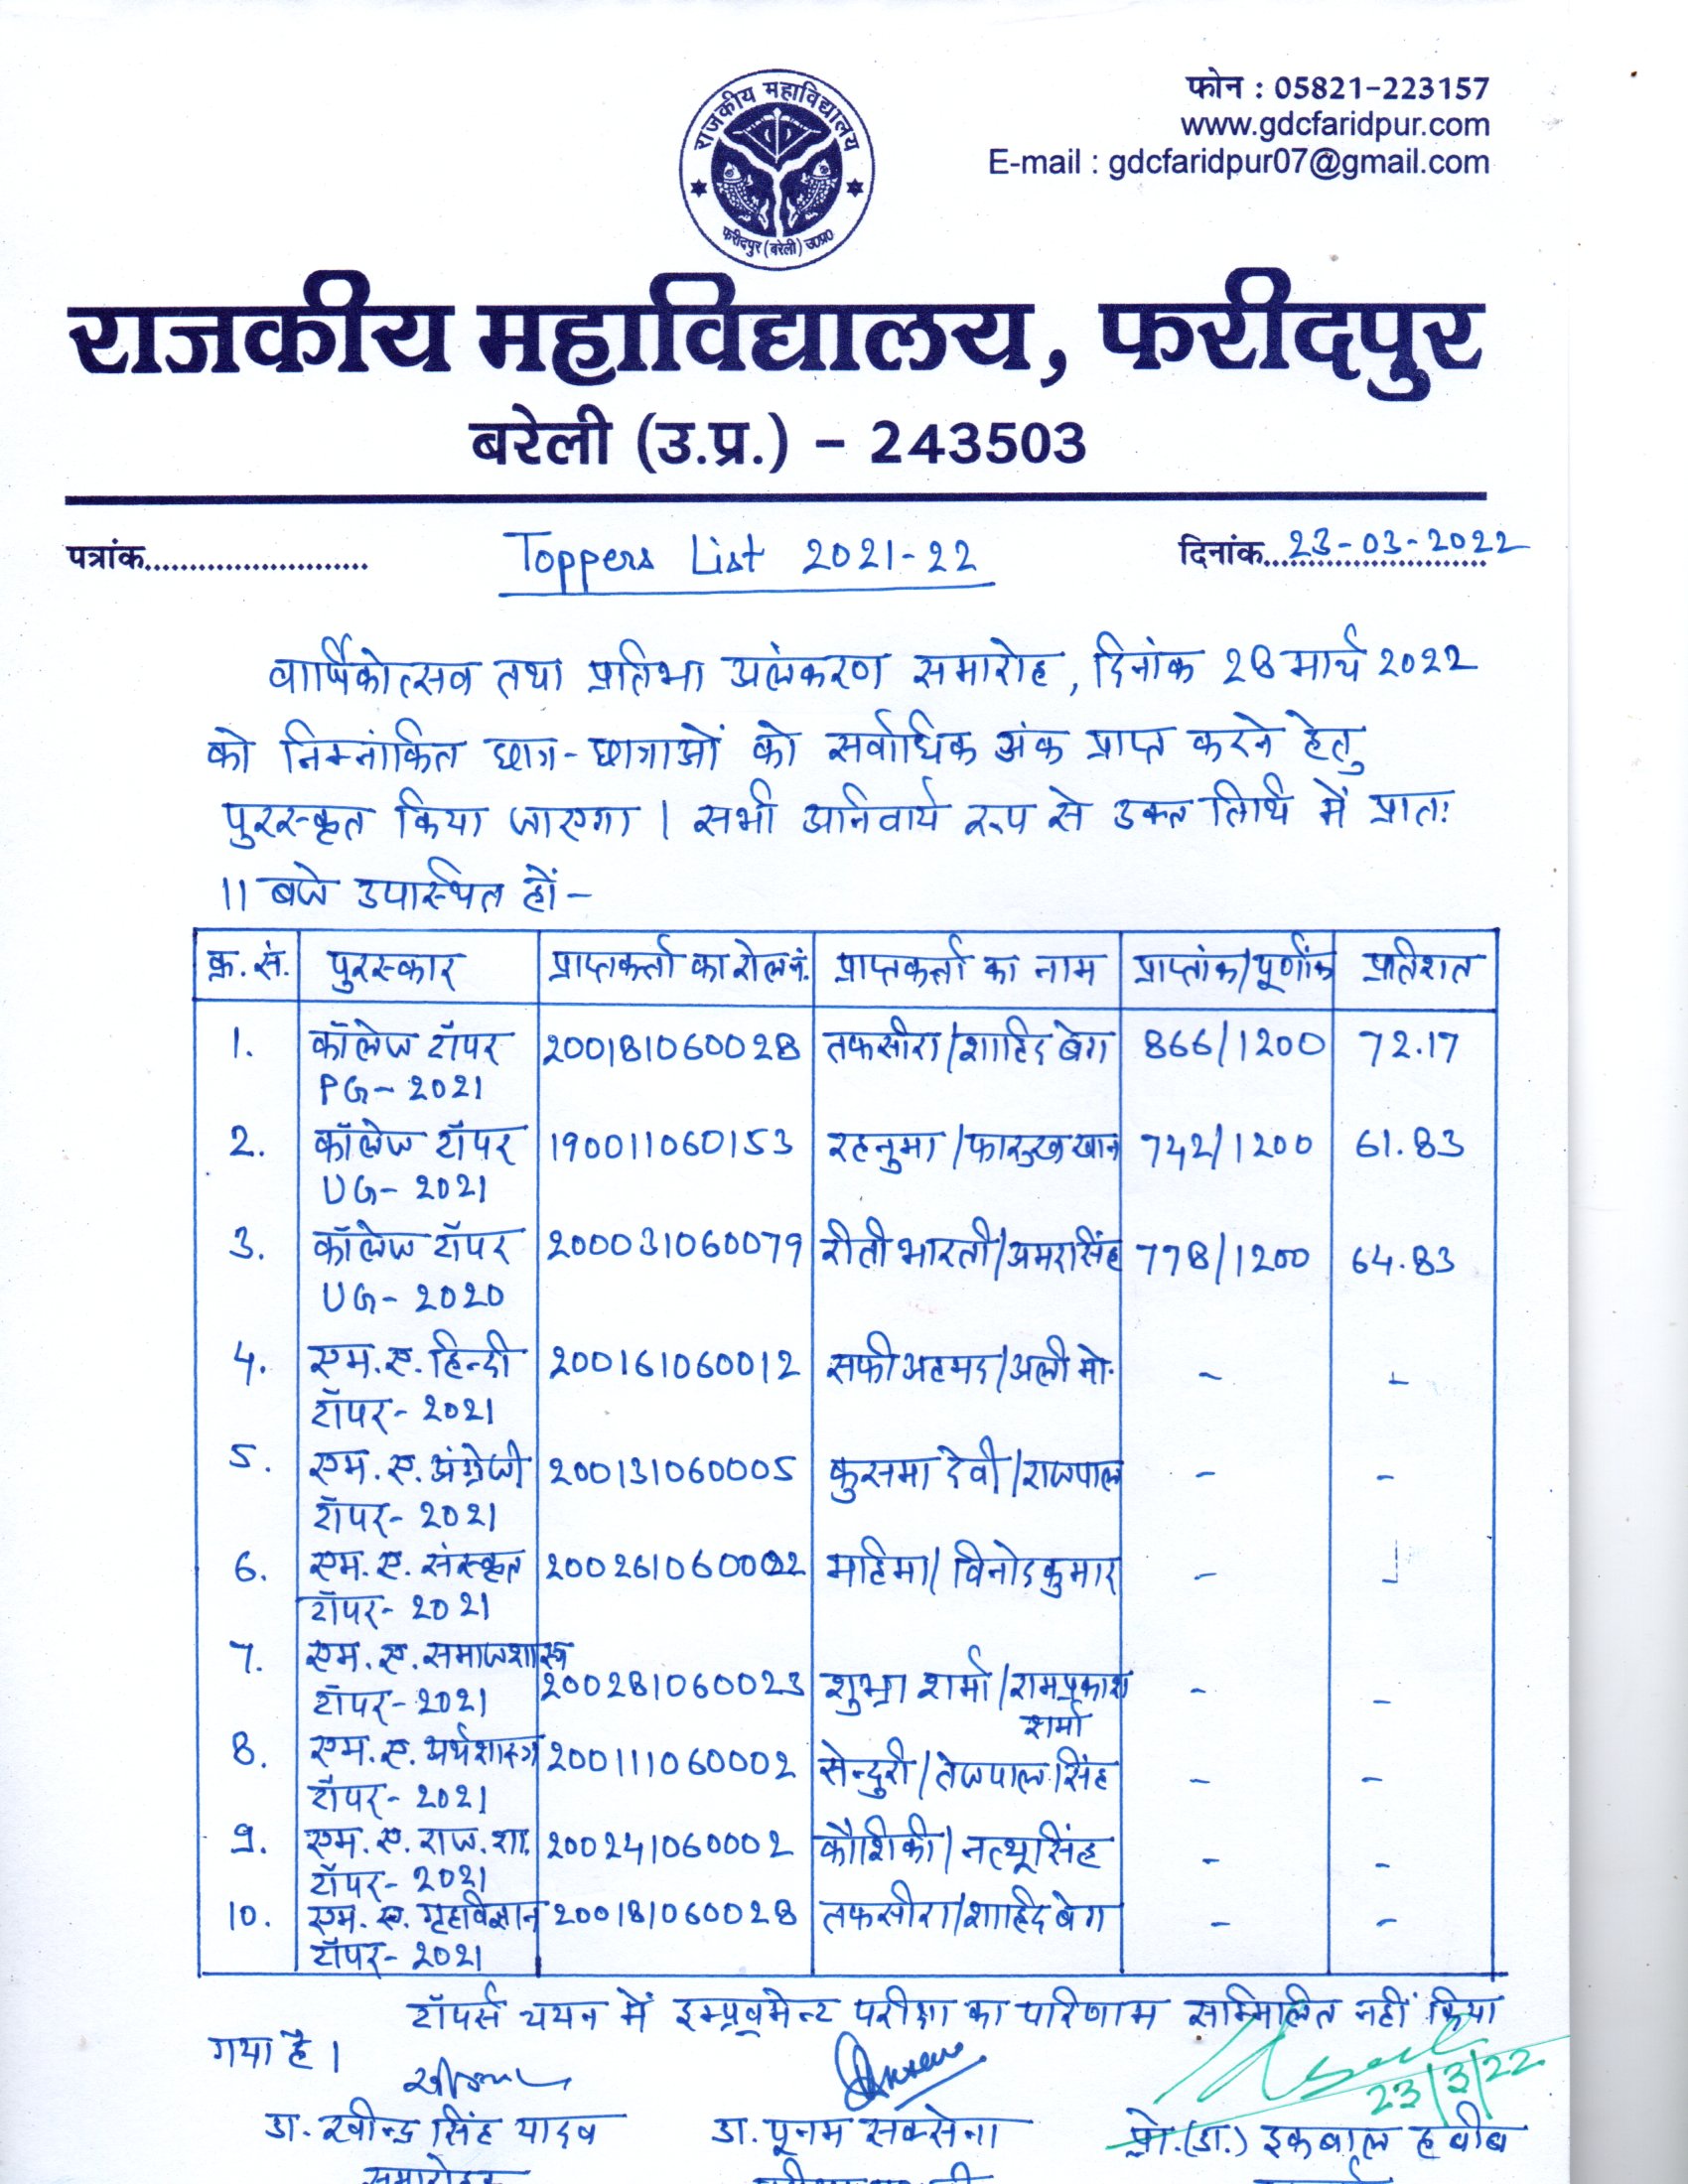 राजकीय महाविद्यालय
फरीदपुर (बरेली) उ०प्र०
फोन : 05821-223157
www.gdcfaridpur.com
E-mail : gdcfaridpur07@gmail.com
राजकीय महाविद्यालय, फरीदपुर
बरेली (उ.प्र.) - 243503
पत्रांक........................ Toppers List 2021-22 दिनांक...23-03-2022
वार्षिकोत्सव तथा प्रतिभा अलंकरण समारोह, दिनांक 28 मार्च 2022
को निम्नांकित छात्र-छात्राओं को सर्वाधिक अंक प्राप्त करने हेतु
पुरस्कृत किया जाएगा। सभी अनिवार्य रूप से उक्त तिथि में प्रातः
11 बजे उपस्थित हों-
क्र.सं. पुरस्कार प्राप्तकर्ता का रोल नं. प्राप्तकर्ता का नाम प्राप्तांक/पूर्णांक प्रतिशत
1. कॉलेज टॉपर 200181060028 तफसीरा/शाहिद बेग 866/1200 72.17
PG-2021
2. कॉलेज टॉपर 190011060153 रहनुमा/फारुख खान 742/1200 61.83
UG-2021
3. कॉलेज टॉपर 200031060079 रीती भारती/अमर सिंह 778/1200 64.83
UG-2020
4. एम.ए. हिन्दी 200161060012 सफी अहमद/अली मो. - -
टॉपर-2021
5. एम.ए. अंग्रेजी 200131060005 कुसमा देवी/राजपाल - -
टॉपर-2021
6. एम.ए. संस्कृत 200261060002 महिमा/विनोद कुमार - -
टॉपर-2021
7. एम.ए. समाजशास्त्र
टॉपर-2021 200281060023 शुभ्रा शर्मा/रामप्रकाश - -
शर्मा
8. एम.ए. अर्थशास्त्र 200111060002 सेन्दुरी/तेजपाल सिंह - -
टॉपर-2021
9. एम.ए. राज.शा. 200241060002 कौशिकी/नत्थू सिंह - -
टॉपर-2021
10. एम.ए. गृहविज्ञान 200181060028 तफसीरा/शाहिद बेग - -
टॉपर-2021
टॉपर्स चयन में इम्प्रूवमेन्ट परीक्षा का परिणाम सम्मिलित नहीं किया
गया है।
23/3/22
डा. रवीन्द्र सिंह यादव डा. पूनम सक्सेना प्रो.(डा.) इकबाल हबीब